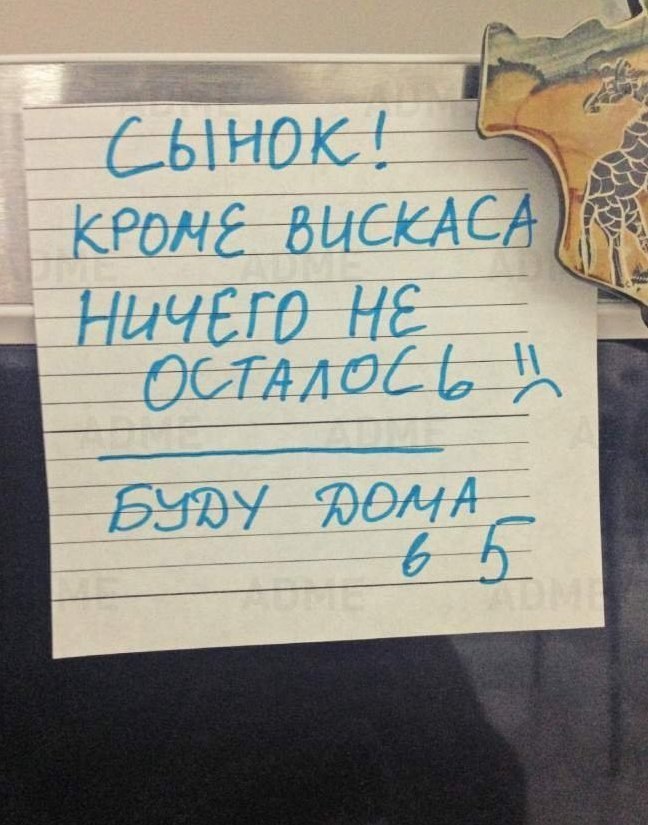 СЫНОК!
КРОМЕ ВИСКАСА
НИЧЕГО НЕ
ОСТАЛОСЬ :(
БУДУ ДОМА
в 5
ADME
ADME
ADME
ADME
ADME
ADME
ADME
ADME
ADME
ADME